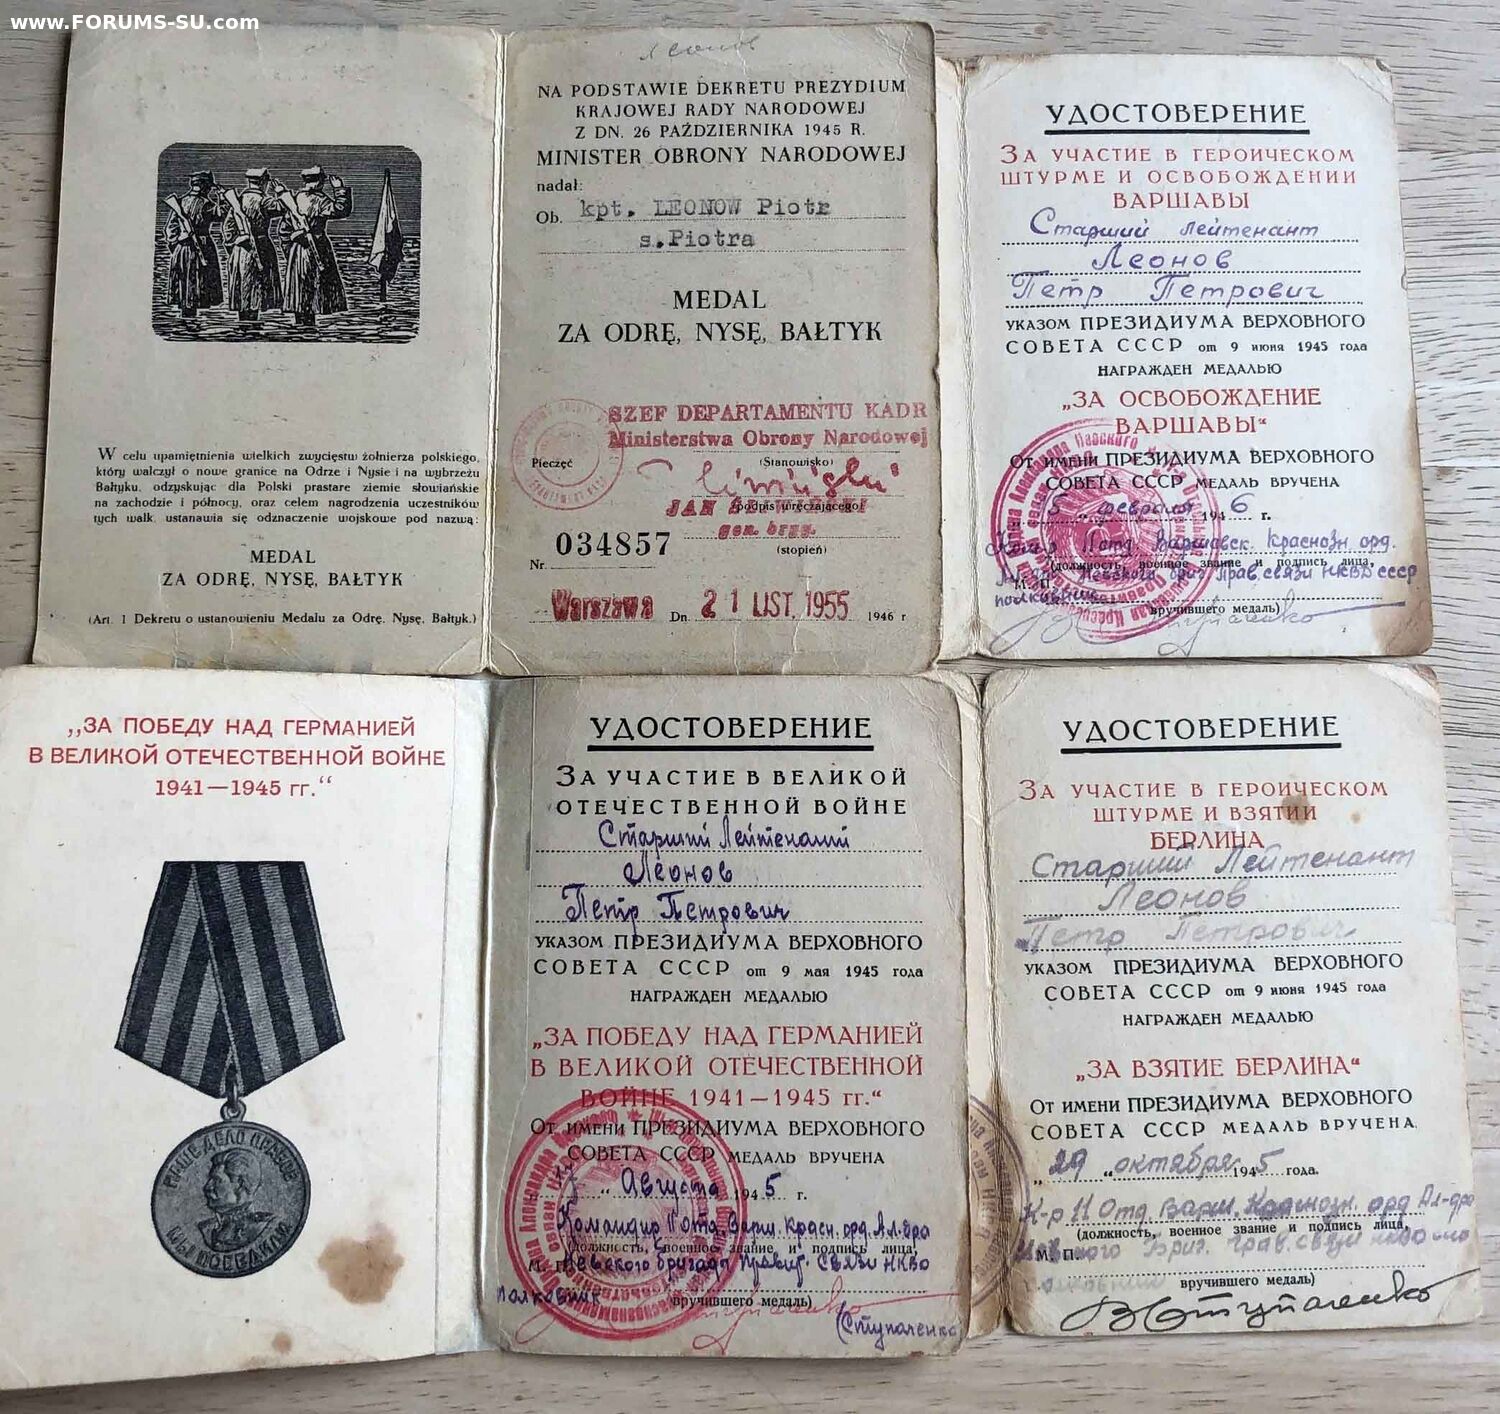 www.FORUMS-SU.com
W celu upamiętnienia wielkich zwycięstw żołnierza polskiego,
który walczył o nowe granice na Odrze i Nysie i na wybrzeżu
Bałtyku, odzyskując dla Polski prastare ziemie słowiańskie
na zachodzie i północy, oraz celem nagrodzenia uczestników
tych walk, ustanawia się odznaczenie wojskowe pod nazwą:
MEDAL
ZA ODRĘ, NYSĘ, BAŁTYK
(Art. 1 Dekretu o ustanowieniu Medalu za Odrę, Nysę, Bałtyk.)
Леонов
NA PODSTAWIE DEKRETU PREZYDIUM
KRAJOWEJ RADY NARODOWEJ
Z DN. 26 PAŹDZIERNIKA 1945 R.
MINISTER OBRONY NARODOWEJ
nadał:
Ob. kpt. LEONOW Piotr
s. Piotra
MEDAL
ZA ODRĘ, NYSĘ, BAŁTYK
SZEF DEPARTAMENTU KADR
Ministerstwa Obrony Narodowej
Pieczęć
(Stanowisko)
JAN
podpis wręczającego
gen. bryg.
(stopień)
Nr 034857
Warszawa Dn. 21 LIST. 1955 1946 r
УДОСТОВЕРЕНИЕ
ЗА УЧАСТИЕ В ГЕРОИЧЕСКОМ
ШТУРМЕ И ОСВОБОЖДЕНИИ
ВАРШАВЫ
Старший лейтенант
Леонов
Петр Петрович
УКАЗОМ ПРЕЗИДИУМА ВЕРХОВНОГО
СОВЕТА СССР от 9 июня 1945 года
НАГРАЖДЕН МЕДАЛЬЮ
„ЗА ОСВОБОЖДЕНИЕ
ВАРШАВЫ“
От имени ПРЕЗИДИУМА ВЕРХОВНОГО
СОВЕТА СССР МЕДАЛЬ ВРУЧЕНА
„5 „ февраля 1946 г.
Отд. Варшавск. Краснозн. орд.
(должность, военное звание и подпись лица,
М. П. Невского бриг. прав. связи НКВД СССР
полковник
вручившего медаль)
„ЗА ПОБЕДУ НАД ГЕРМАНИЕЙ
В ВЕЛИКОЙ ОТЕЧЕСТВЕННОЙ ВОЙНЕ
1941—1945 гг.“
НАШЕ ДЕЛО ПРАВОЕ
МЫ ПОБЕДИЛИ
УДОСТОВЕРЕНИЕ
ЗА УЧАСТИЕ В ВЕЛИКОЙ
ОТЕЧЕСТВЕННОЙ ВОЙНЕ
Старший Лейтенант
Леонов
Петр Петрович
УКАЗОМ ПРЕЗИДИУМА ВЕРХОВНОГО
СОВЕТА СССР от 9 мая 1945 года
НАГРАЖДЕН МЕДАЛЬЮ
„ЗА ПОБЕДУ НАД ГЕРМАНИЕЙ
В ВЕЛИКОЙ ОТЕЧЕСТВЕННОЙ
ВОЙНЕ 1941—1945 гг.“
От имени ПРЕЗИДИУМА ВЕРХОВНОГО
СОВЕТА СССР МЕДАЛЬ ВРУЧЕНА
„ Августа 1945 г.
Командир Отд. Варш. Красн. орд. Ал-дра
(должность, военное звание и подпись лица,
М. П. Невского бригады Правит. связи НКВД
полковник
вручившего медаль)
(Ступаченко
УДОСТОВЕРЕНИЕ
ЗА УЧАСТИЕ В ГЕРОИЧЕСКОМ
ШТУРМЕ И ВЗЯТИИ
БЕРЛИНА
Старший Лейтенант
Леонов
Петр Петрович
УКАЗОМ ПРЕЗИДИУМА ВЕРХОВНОГО
СОВЕТА СССР от 9 июня 1945 года
НАГРАЖДЕН МЕДАЛЬЮ
„ЗА ВЗЯТИЕ БЕРЛИНА“
От имени ПРЕЗИДИУМА ВЕРХОВНОГО
СОВЕТА СССР МЕДАЛЬ ВРУЧЕНА
„29 „ октября 1945 года.
К-р 11 Отд. Варш. Краснозн. орд Ал-дра
(должность, военное звание и подпись лица,
М. П. Невского Бриг. Прав. связи НКВД
вручившего медаль)
В Ступаченко